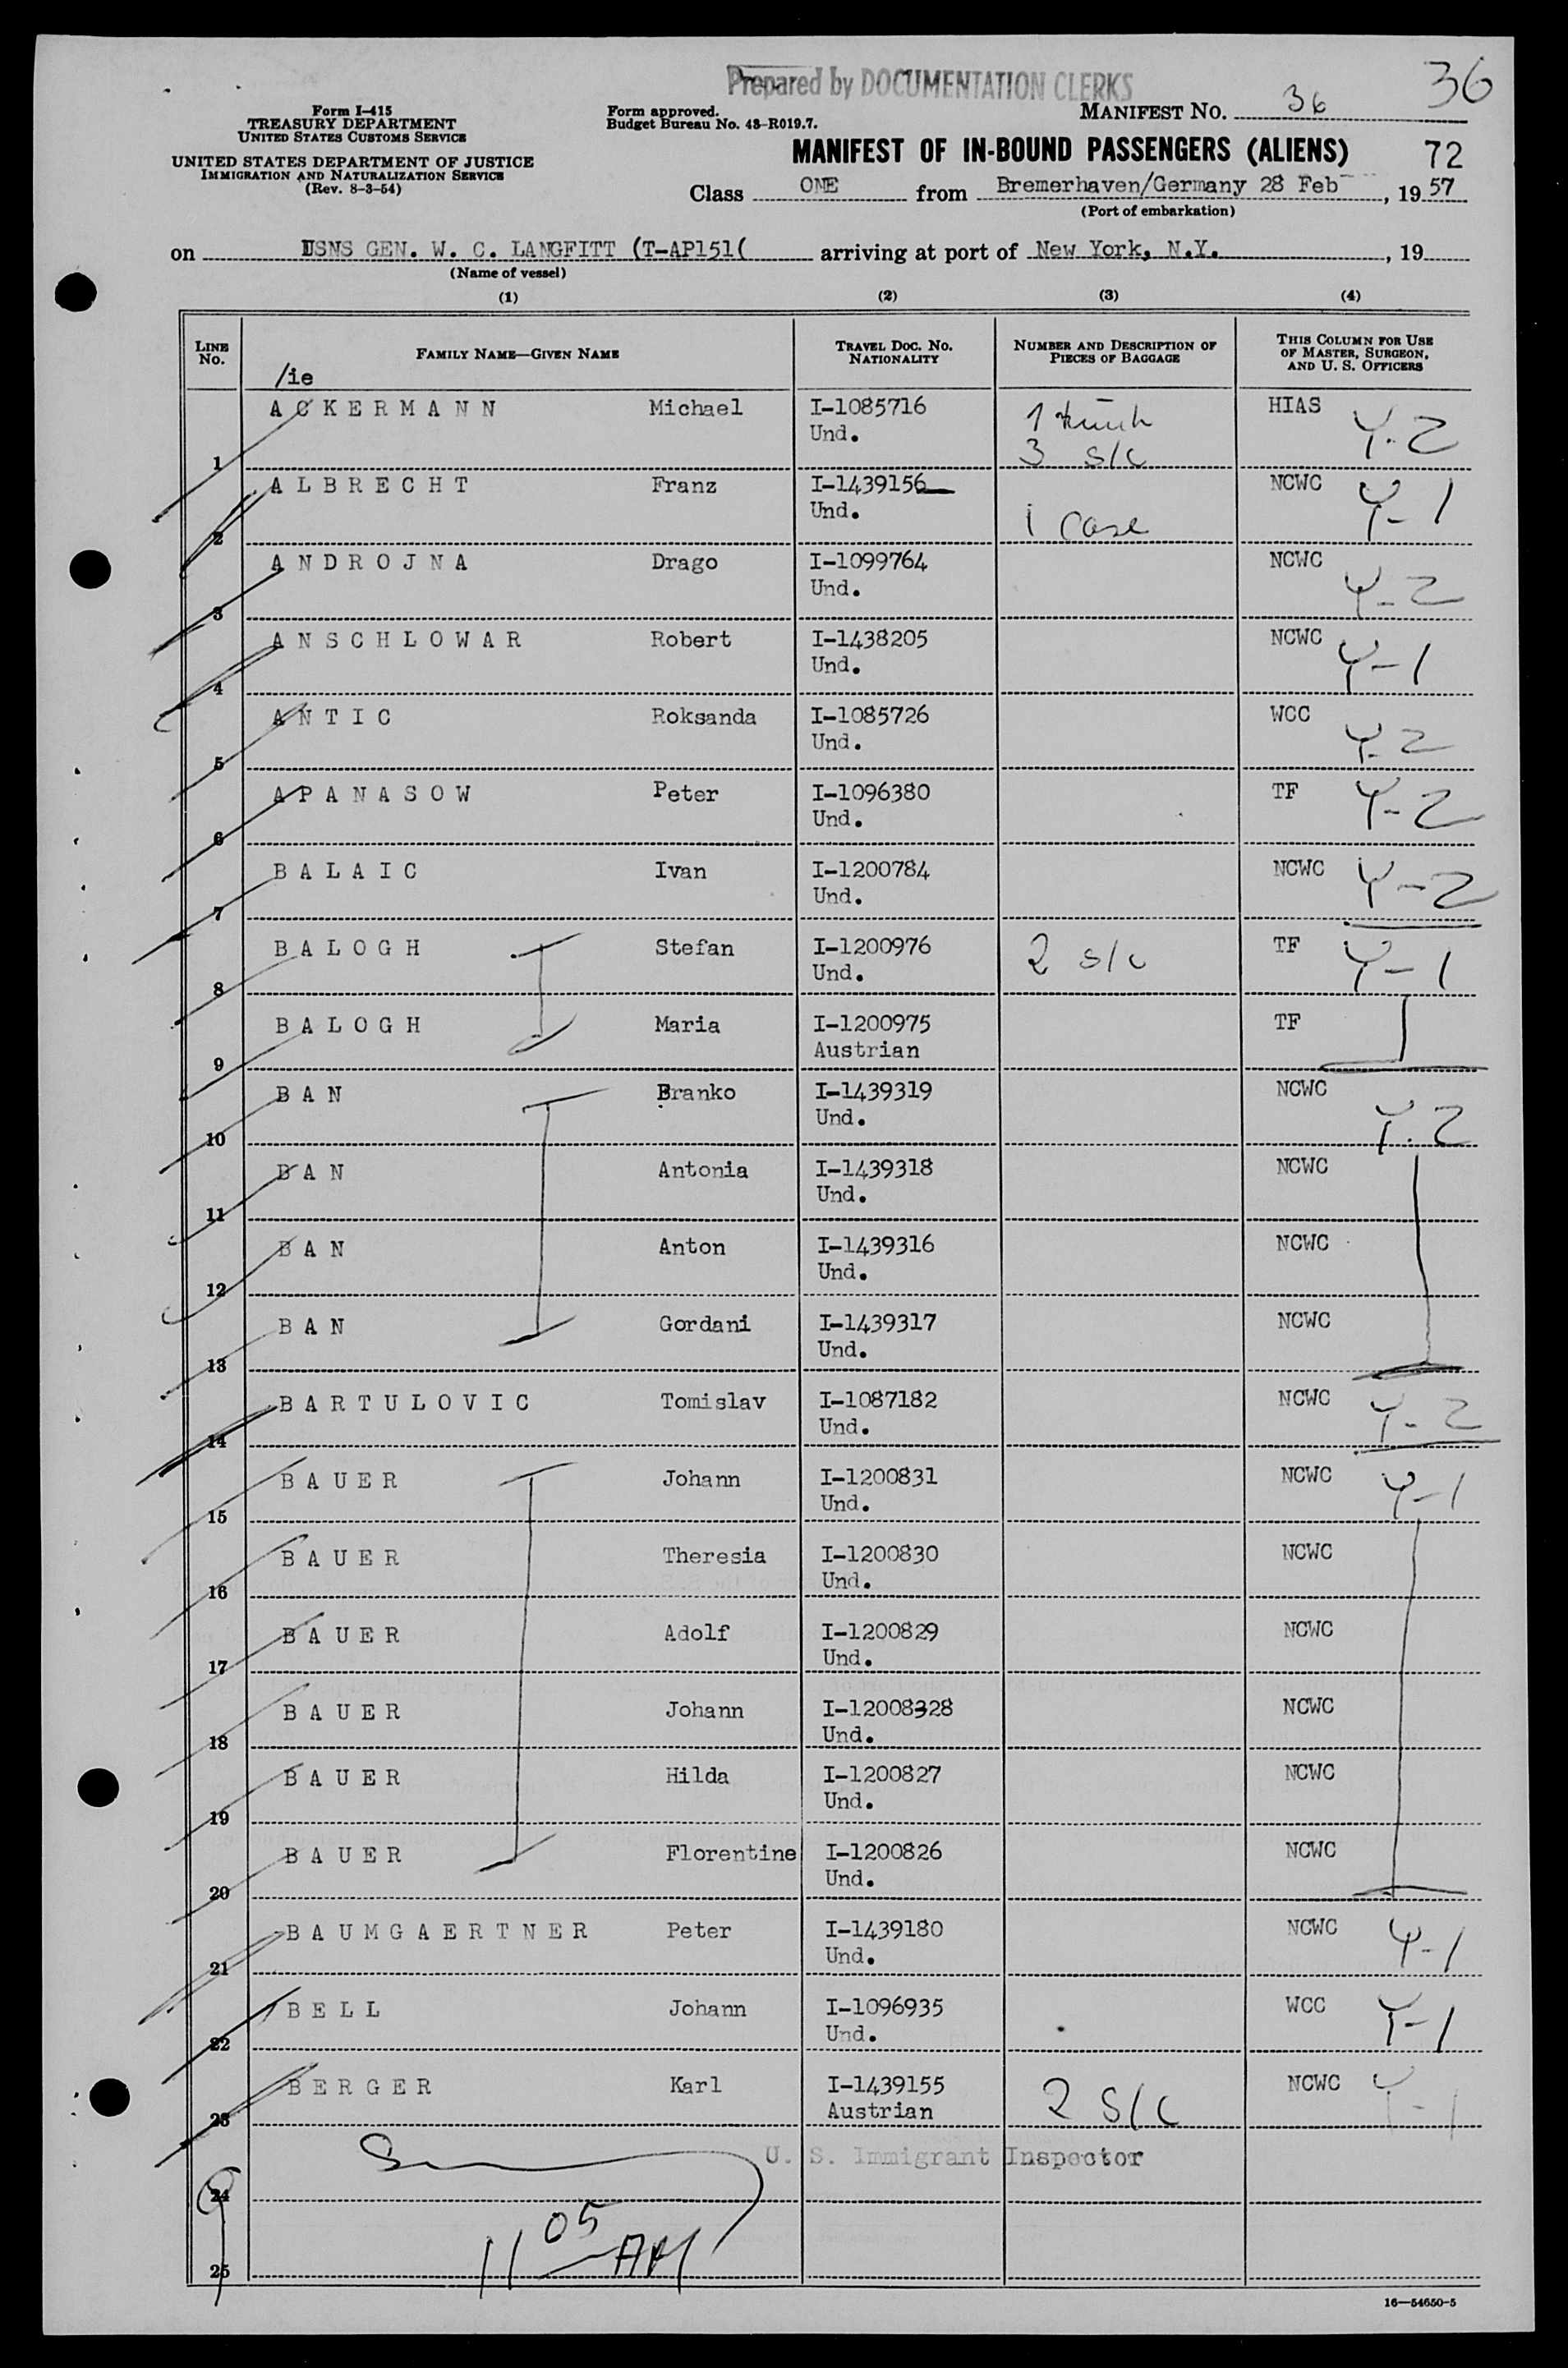 Prepared by DOCUMENTATION CLERKS
36
Form I-415
TREASURY DEPARTMENT
UNITED STATES CUSTOMS SERVICE
UNITED STATES DEPARTMENT OF JUSTICE
IMMIGRATION AND NATURALIZATION SERVICE
(Rev. 8-3-54)
Form approved.
Budget Bureau No. 43-R019.7.
MANIFEST NO. 36
MANIFEST OF IN-BOUND PASSENGERS (ALIENS) 72
Class ONE from Bremerhaven/Germany 28 Feb, 1957
(Port of embarkation)
on USNS GEN. W. C. LANGFITT (T-AP151( arriving at port of New York, N.Y., 19
(Name of vessel)
(1) (2) (3) (4)
LINE NO. FAMILY NAME—GIVEN NAME TRAVEL DOC. NO. NATIONALITY NUMBER AND DESCRIPTION OF PIECES OF BAGGAGE THIS COLUMN FOR USE OF MASTER, SURGEON, AND U. S. OFFICERS
/ie
1 ACKERMANN Michael I-1085716 Und. 1 trunk 3 s/c HIAS Y-2
2 ALBRECHT Franz I-1439156 Und. 1 case NCWC Y-1
3 ANDROJNA Drago I-1099764 Und. NCWC Y-2
4 ANSCHLOWAR Robert I-1438205 Und. NCWC Y-1
5 ANTIC Roksanda I-1085726 Und. WCC Y-2
6 APANASOW Peter I-1096380 Und. TF Y-2
7 BALAIC Ivan I-1200784 Und. NCWC Y-2
8 BALOGH Stefan I-1200976 Und. 2 s/c TF Y-1
9 BALOGH Maria I-1200975 Austrian TF
10 BAN Branko I-1439319 Und. NCWC Y-2
11 BAN Antonia I-1439318 Und. NCWC
12 BAN Anton I-1439316 Und. NCWC
13 BAN Gordani I-1439317 Und. NCWC
14 BARTULOVIC Tomislav I-1087182 Und. NCWC Y-2
15 BAUER Johann I-1200831 Und. NCWC Y-1
16 BAUER Theresia I-1200830 Und. NCWC
17 BAUER Adolf I-1200829 Und. NCWC
18 BAUER Johann I-12008328 Und. NCWC
19 BAUER Hilda I-1200827 Und. NCWC
20 BAUER Florentine I-1200826 Und. NCWC
21 BAUMGAERTNER Peter I-1439180 Und. NCWC Y-1
22 BELL Johann I-1096935 Und. WCC Y-1
23 BERGER Karl I-1439155 Austrian 2 S/C NCWC Y-1
U. S. Immigrant Inspector
24
11 05 AM
25
16—54650-5